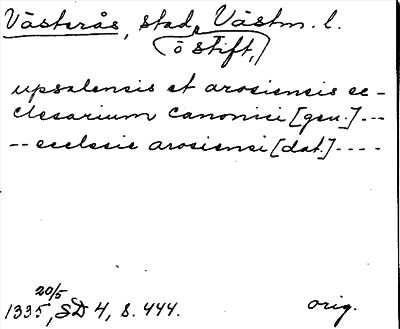 Västerås, stad, Västm. l.
(ö stift,)
upsalensis et arosiensis ec-
clesarium canonici [gen.] ---
-- ecclesie arosiensi [dat.] ----
20/5
1335, SD 4, s. 444. orig.